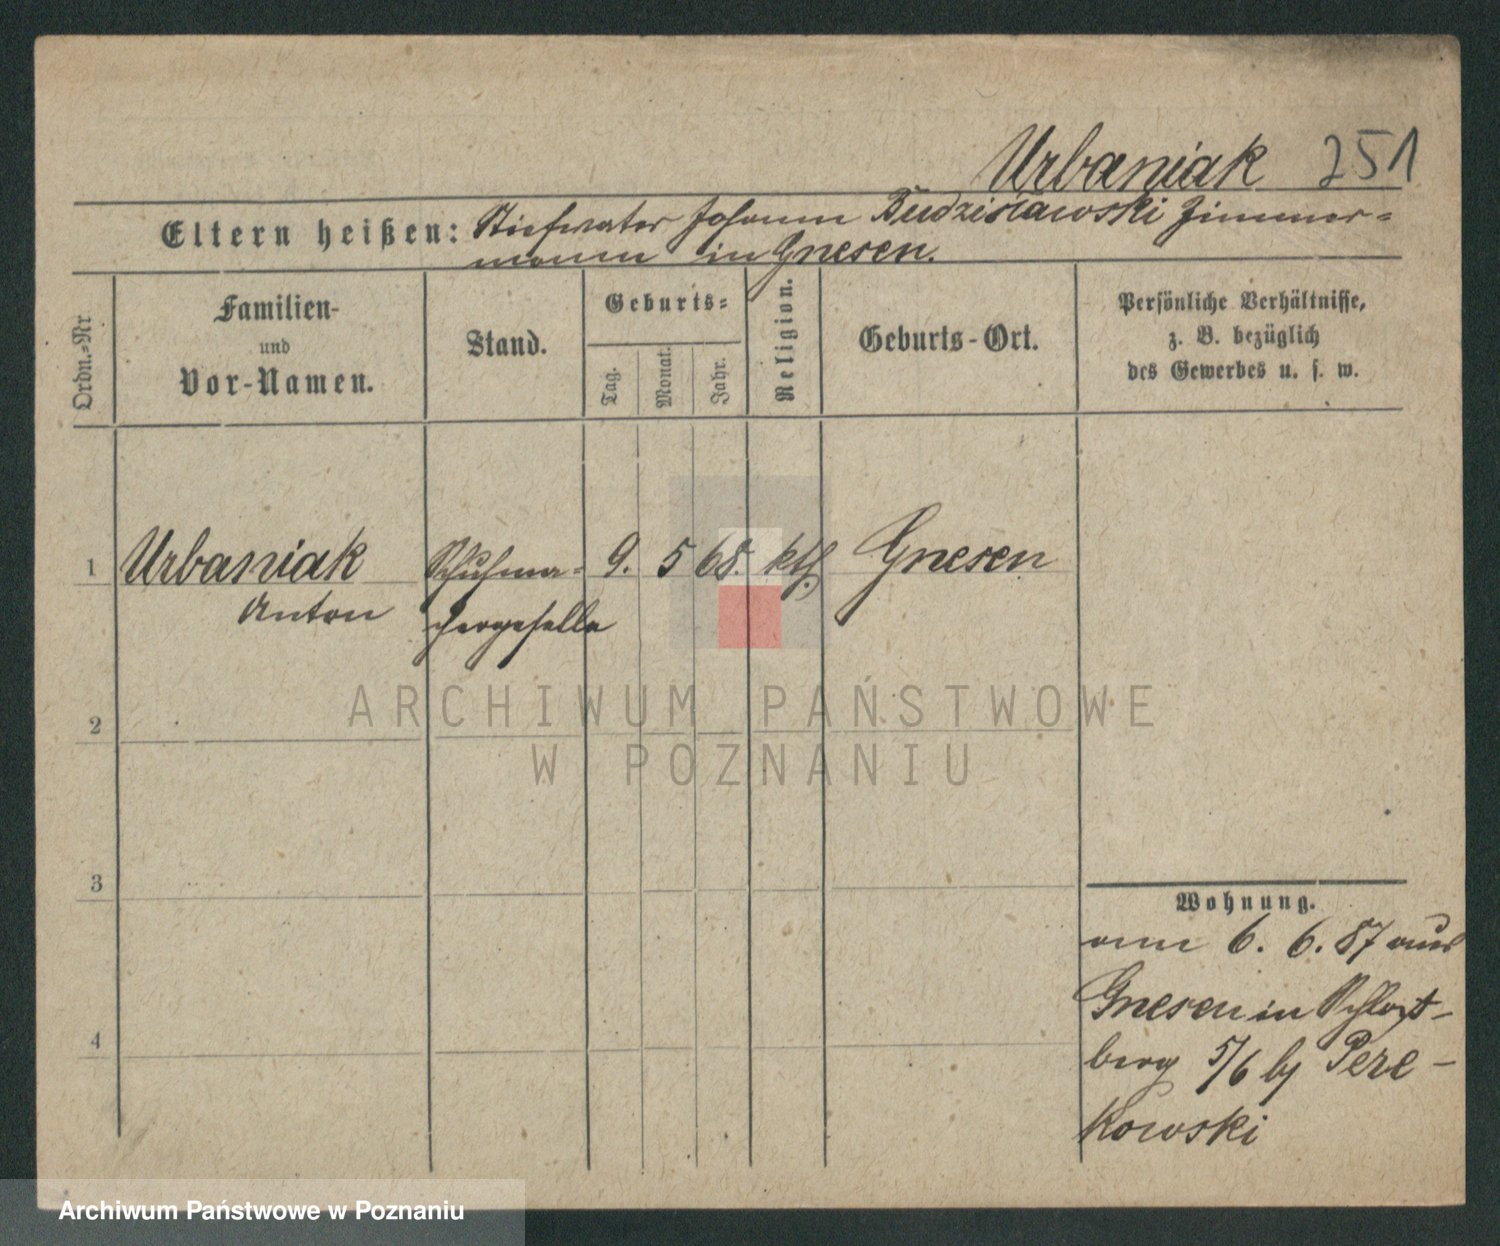 Urbaniak 251
Eltern heißen: Stiefvater Johann Budzisławski Zimmer-
mann in Gnesen.
Ordn.-Nr
Familien-
und
Vor-Namen.
Stand.
Geburts-
Tag.
Monat.
Jahr.
Religion.
Geburts-Ort.
Persönliche Verhältnisse,
z. B. bezüglich
des Gewerbes u. s. w.
1 Urbaniak Schuhma- 9. 5 68. kth. Gnesen
Anton chergeselle
ARCHIWUM PAŃSTWOWE
W POZNANIU
2
3
4
Wohnung.
am 6. 6. 87 aus
Gnesen in Schloß-
berg 5/6 by Pere-
kowski
Archiwum Państwowe w Poznaniu